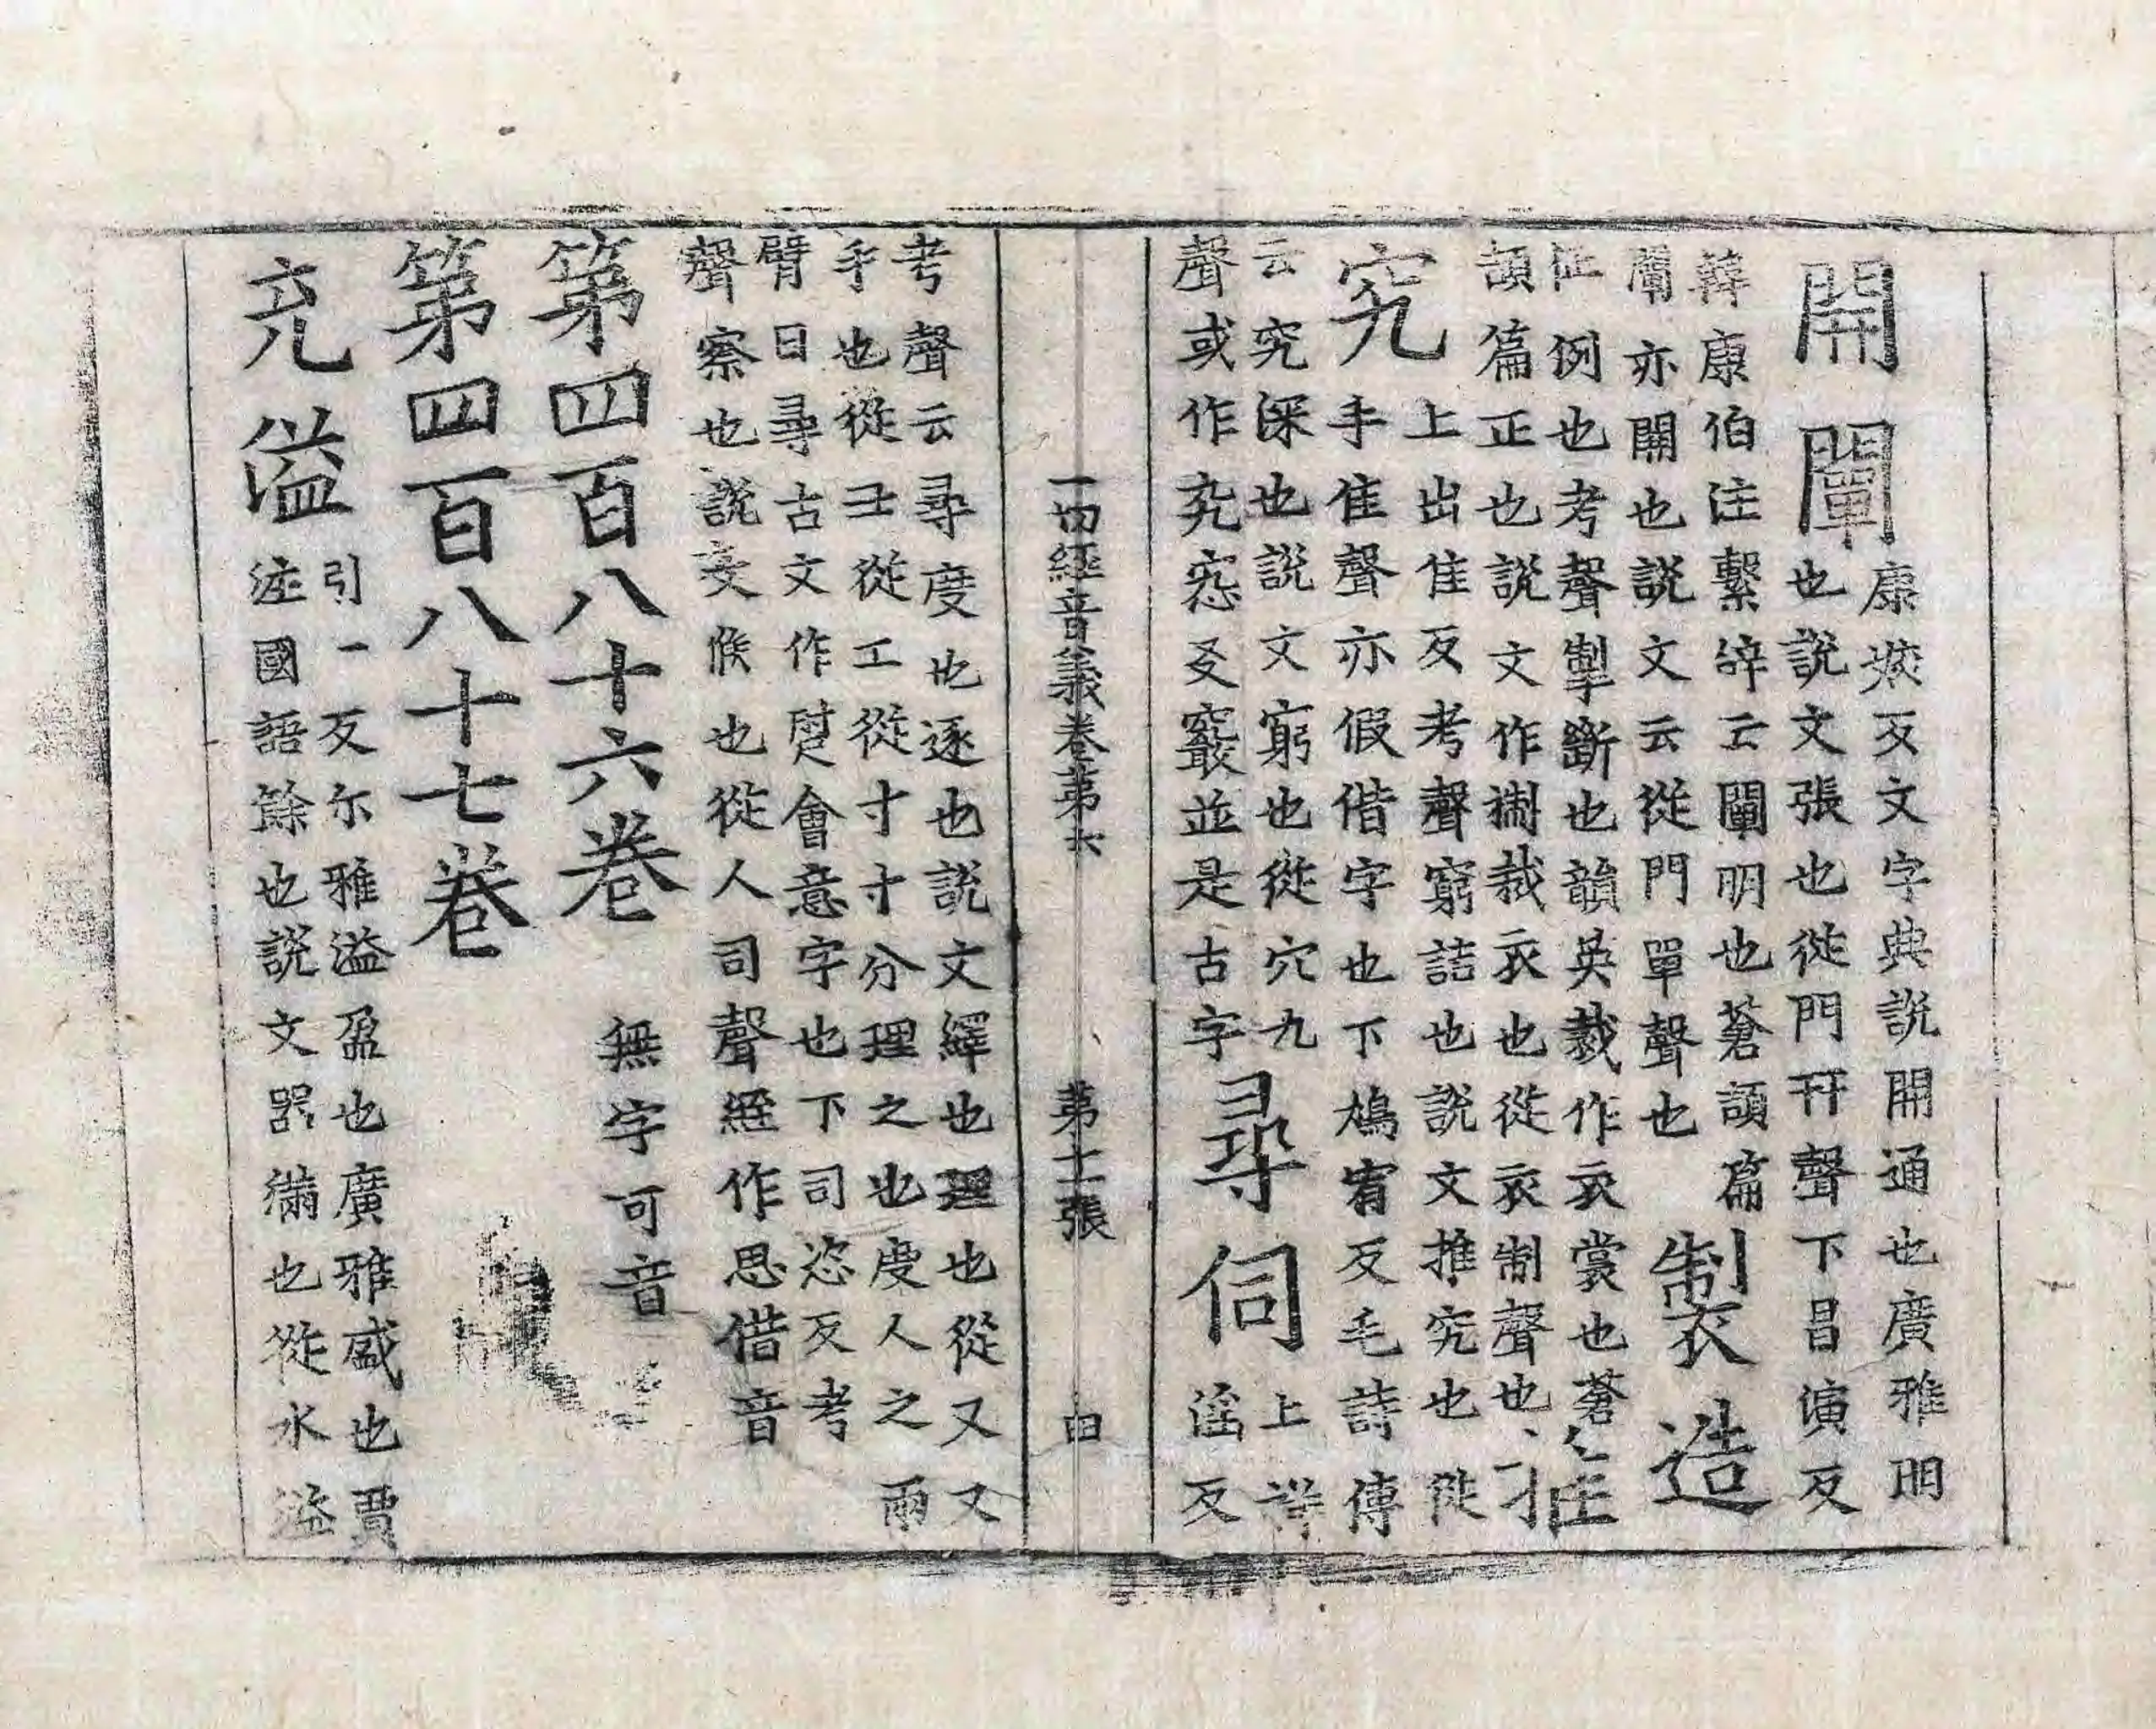 開闡康㛄反文字典說開通也廣雅明
也說文張也從門幵聲下昌演反
韓康伯注繫辝云闡明也蒼頡篇
闡亦開也說文云從門單聲也製造
征例也考聲掣斷也韻英裁作衣裳也蒼
頡篇正也說文作製裁衣也從衣制聲也推
究上出隹反考聲窮詰也說文推究也從
手隹聲亦假借字也下鳩宥反毛詩傳
云究深也說文窮也從穴九
聲或作㱾㤹㕛竅並是古字尋伺上祥
淫反
一切經音義卷第六 第十一張 曰
考聲云尋度也逐也說文繹也理也從又又
手也從彐從工從寸寸分理之也度人之兩
臂曰尋古文作㝷會意字也下司恣反考
聲察也說文候也從人司聲經作思借音
第四百八十六卷 無字可音
第四百八十七卷
充溢引一反尒雅溢盈也廣雅盛也賈
注國語餘也說文器滿也從水溢